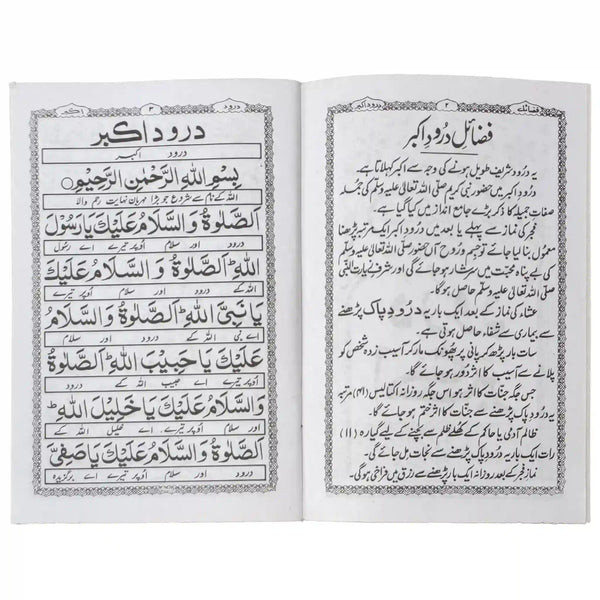 فضائل
۲
درود اکبر
فضائل درودِ اکبر
یہ درود شریف طویل ہونے کی وجہ سے اکبر کہلاتا ہے۔
درودِ اکبر میں حضور نبی کریم صلی اللہ تعالیٰ علیہ وسلم کی جملہ
صفاتِ جمیلہ کا ذکر بڑے جامع انداز میں کیا گیا ہے۔
فجر کی نماز سے پہلے یا بعد میں درود اکبر ایک مرتبہ پڑھنا
معمول بنا لیا جائے تو جسم و روح آں حضور صلی اللہ تعالیٰ علیہ وسلم
کی بے پناہ محبت میں سرشار ہو جائے گی اور شرفِ زیارت النبی
صلی اللہ تعالیٰ علیہ وسلم حاصل ہو گی۔
عشاء کی نماز کے بعد ایک بار یہ درودِ پاک پڑھنے
سے بیماری سے شفاء حاصل ہوتی ہے۔
سات بار پڑھ کر پانی پر پھونک مار کر آسیب زدہ شخص کو
پلانے سے آسیب کا اثر دور ہو جائے گا۔
جس جگہ جنات کا اثر ہو اس جگہ روزانہ اکتالیس (۴۱) مرتبہ
یہ درود پاک پڑھنے سے جنات کا اثر ختم ہو جائے گا۔
ظالم آدمی یا حاکم کے ظلم سے بچنے کے لیے گیارہ (۱۱)
رات ایک بار یہ درود پاک پڑھنے سے نجات مل جائے گی۔
نماز فجر کے بعد روزانہ ایک بار پڑھنے سے رزق میں فراخی ہو گی۔
درود
۳
اکبر
درود اکبر
درود اکبر
بِسْمِ اللّٰهِ الرَّحْمٰنِ الرَّحِيْمِ
اللہ کے نام سے شروع جو بڑا مہربان نہایت رحم والا
اَلصَّلٰوةُ وَالسَّلَامُ عَلَيْكَ يَا رَسُوْلَ
درود اور سلام اُوپر تیرے اے رسول
اللّٰهِ اَلصَّلٰوةُ وَ السَّلَامُ عَلَيْكَ
اللہ کے درود اور سلام اُوپر تیرے
يَا نَبِىَّ اللّٰهِ اَلصَّلٰوةُ وَ السَّلَامُ
اے نبی اللہ کے درود اور سلام
عَلَيْكَ يَا حَبِيْبَ اللّٰهِ اَلصَّلٰوةُ
اُوپر تیرے اے حبیب اللہ کے درود
وَالسَّلَامُ عَلَيْكَ يَا خَلِيْلَ اللّٰهِ
اور سلام اُوپر تیرے اے خلیل اللہ کے
اَلصَّلٰوةُ وَ السَّلَامُ عَلَيْكَ يَا صَفِىَّ
درود اور سلام اُوپر تیرے اے برگزیدہ